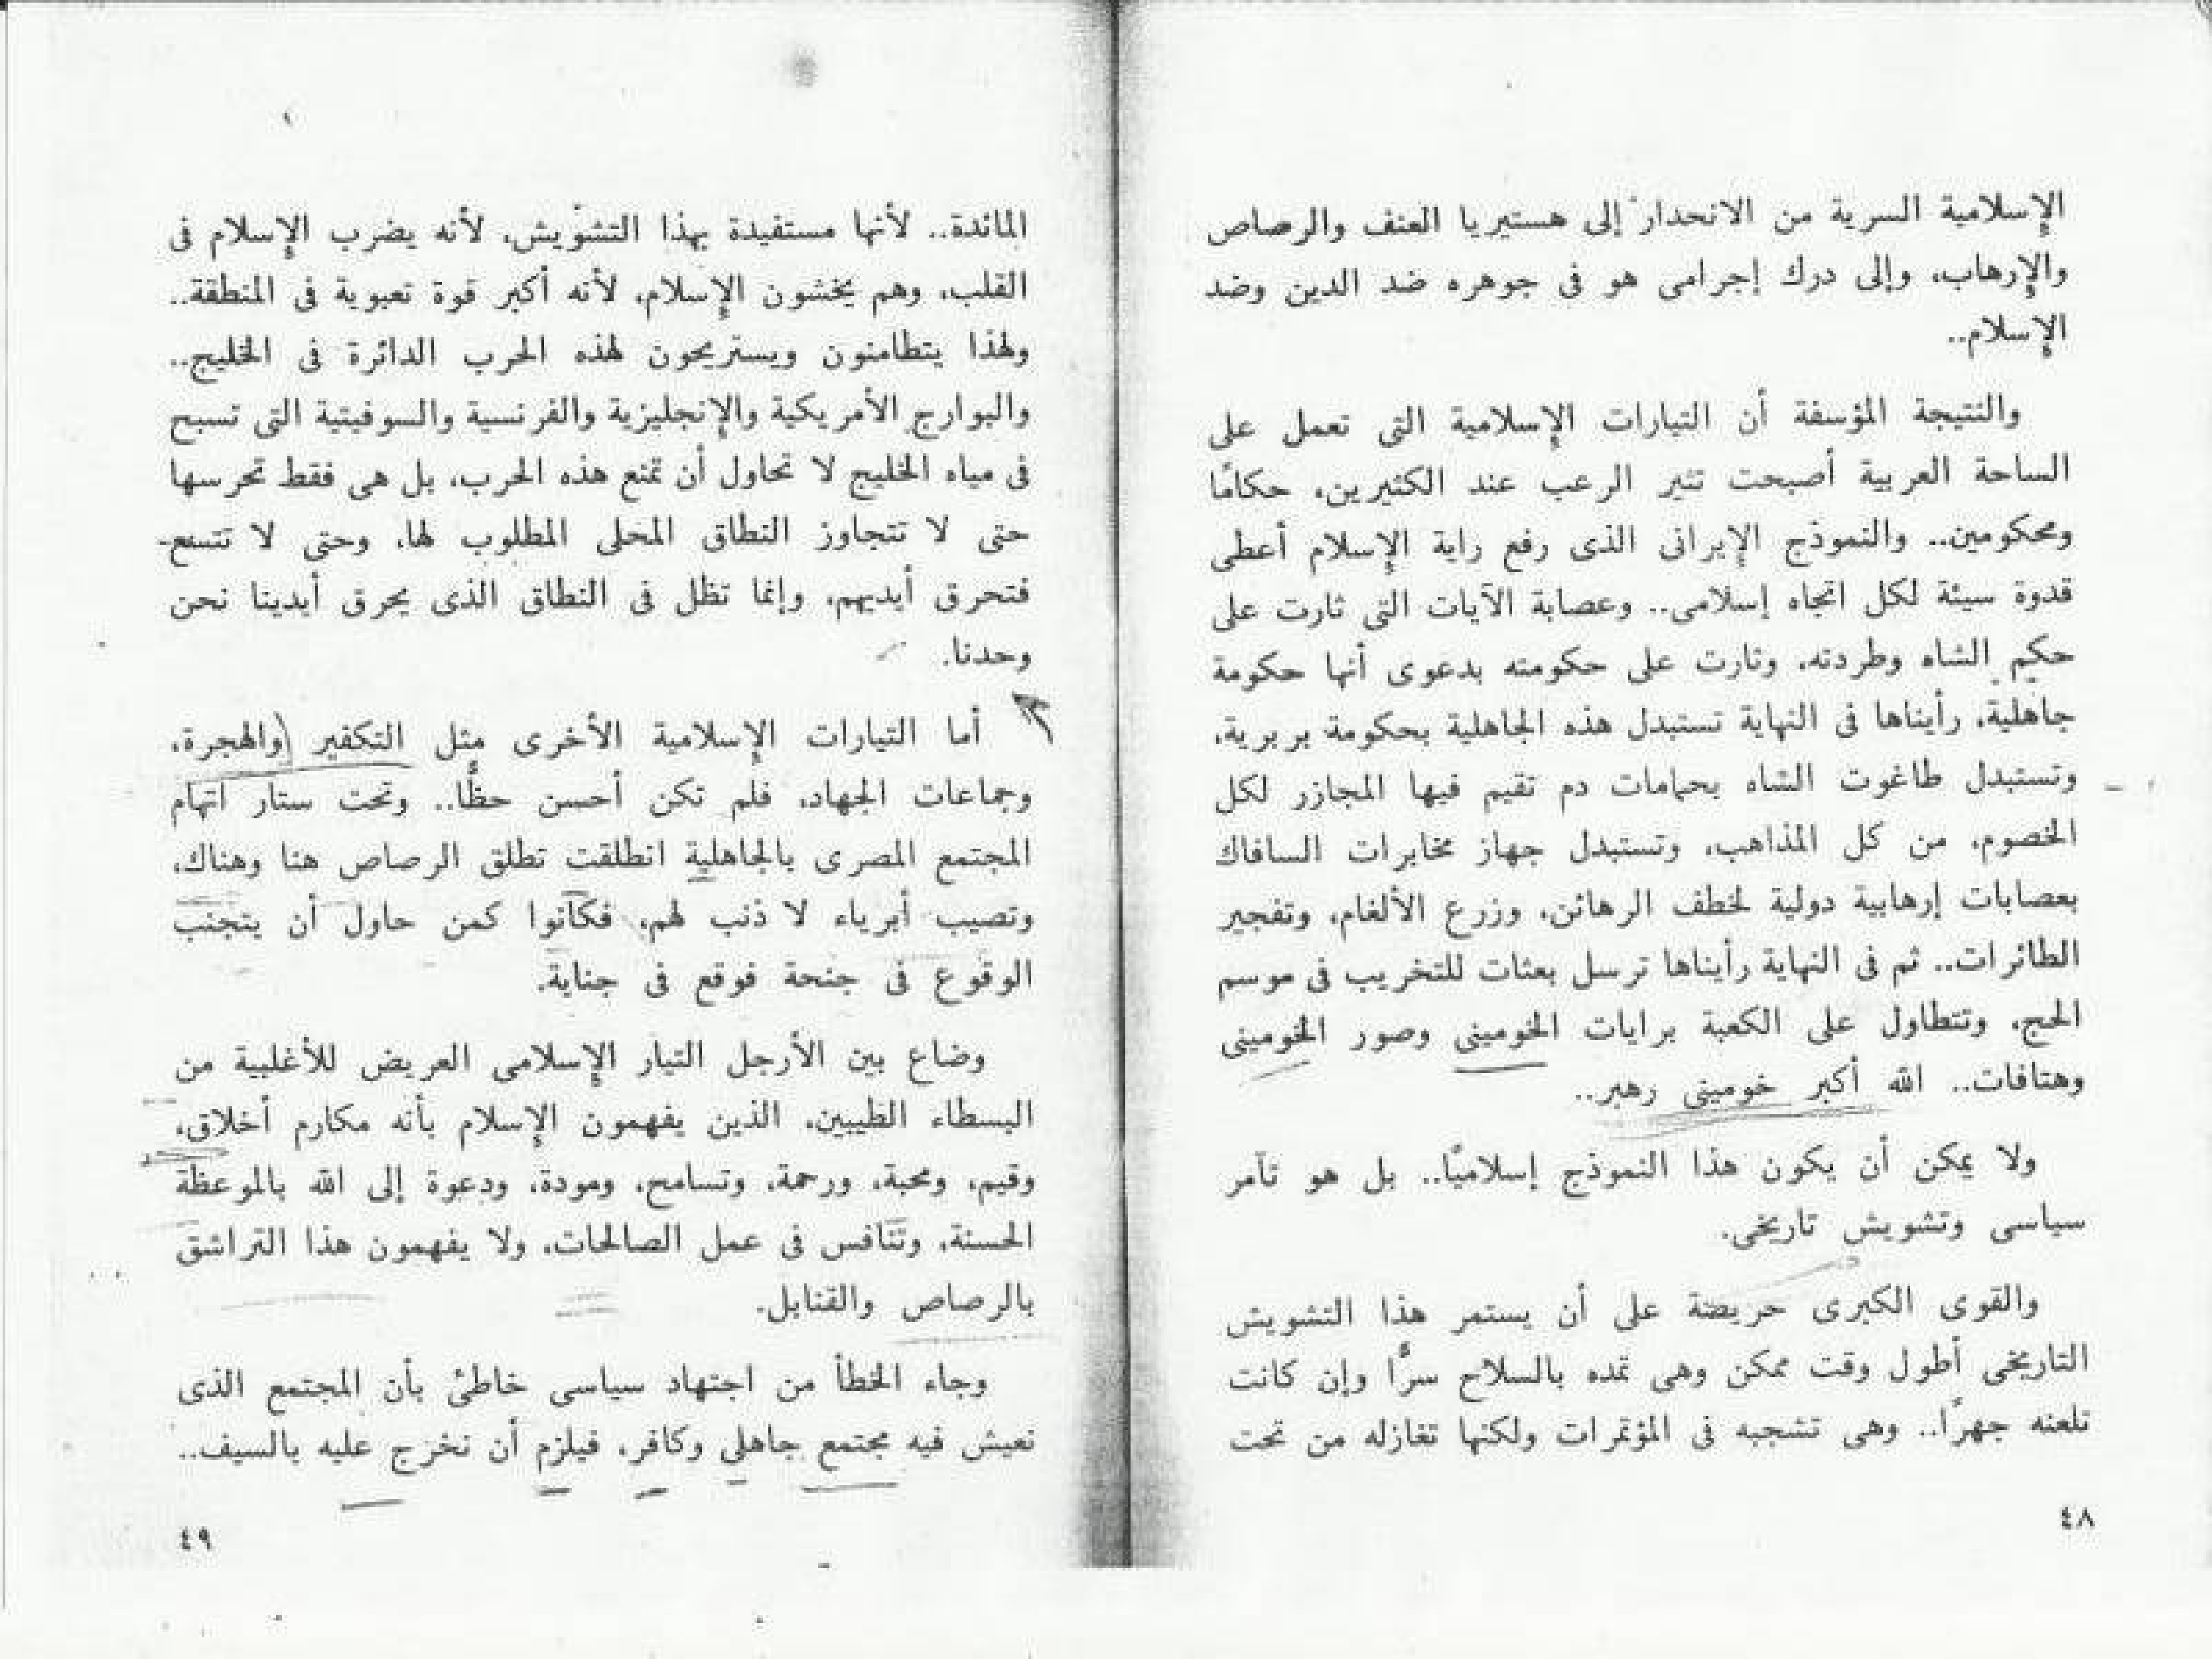 الإسلامية السرية من الانحدار إلى هستيريا العنف والرصاص
والإرهاب، وإلى درك إجرامى هو فى جوهره ضد الدين وضد
الإسلام..
والنتيجة المؤسفة أن التيارات الإسلامية التى تعمل على
الساحة العربية أصبحت تثير الرعب عند الكثيرين، حكامًا
ومحكومين.. والنموذج الإيرانى الذى رفع راية الإسلام أعطى
قدوة سيئة لكل اتجاه إسلامى.. وعصابة الآيات التى ثارت على
حكم الشاه وطردته، وثارت على حكومته بدعوى أنها حكومة
جاهلية، رأيناها فى النهاية تستبدل هذه الجاهلية بحكومة بربرية،
وتستبدل طاغوت الشاه بحمامات دم تقيم فيها المجازر لكل
الخصوم، من كل المذاهب، وتستبدل جهاز مخابرات السافاك
بعصابات إرهابية دولية لخطف الرهائن، وزرع الألغام، وتفجير
الطائرات.. ثم فى النهاية رأيناها ترسل بعثات للتخريب فى موسم
الحج، وتتطاول على الكعبة برايات الخومينى وصور الخومينى
وهتافات.. الله أكبر خومينى رهبر..
ولا يمكن أن يكون هذا النموذج إسلاميًا.. بل هو تآمر
سياسى وتشويش تاريخى.
والقوى الكبرى حريصة على أن يستمر هذا التشويش
التاريخى أطول وقت ممكن وهى تمده بالسلاح سرًّا وإن كانت
تلعنه جهرًا.. وهى تشجبه فى المؤتمرات ولكنها تغازله من تحت
٤٨
المائدة.. لأنها مستفيدة بهذا التشويش، لأنه يضرب الإسلام فى
القلب، وهم يخشون الإسلام، لأنه أكبر قوة تعبوية فى المنطقة..
ولهذا يتطامنون ويستريحون لهذه الحرب الدائرة فى الخليج..
والبوارج الأمريكية والإنجليزية والفرنسية والسوفيتية التى تسبح
فى مياه الخليج لا تحاول أن تمنع هذه الحرب، بل هى فقط تحرسها
حتى لا تتجاوز النطاق المحلى المطلوب لها، وحتى لا تتسع
فتحرق أيديهم، وإنما تظل فى النطاق الذى يحرق أيدينا نحن
وحدنا.
أما التيارات الإسلامية الأخرى مثل التكفير والهجرة،
وجماعات الجهاد، فلم تكن أحسن حظًّا.. وتحت ستار اتهام
المجتمع المصرى بالجاهلية انطلقت تطلق الرصاص هنا وهناك،
وتصيب أبرياء لا ذنب لهم، فكانوا كمن حاول أن يتجنب
الوقوع فى جنحة فوقع فى جناية.
وضاع بين الأرجل التيار الإسلامى العريض للأغلبية من
البسطاء الطيبين، الذين يفهمون الإسلام بأنه مكارم أخلاق،
وقيم، ومحبة، ورحمة، وتسامح، ومودة، ودعوة إلى الله بالموعظة
الحسنة، وتنافس فى عمل الصالحات، ولا يفهمون هذا التراشق
بالرصاص والقنابل.
وجاء الخطأ من اجتهاد سياسى خاطئ بأن المجتمع الذى
نعيش فيه مجتمع جاهلى وكافر، فيلزم أن نخرج عليه بالسيف..
٤٩